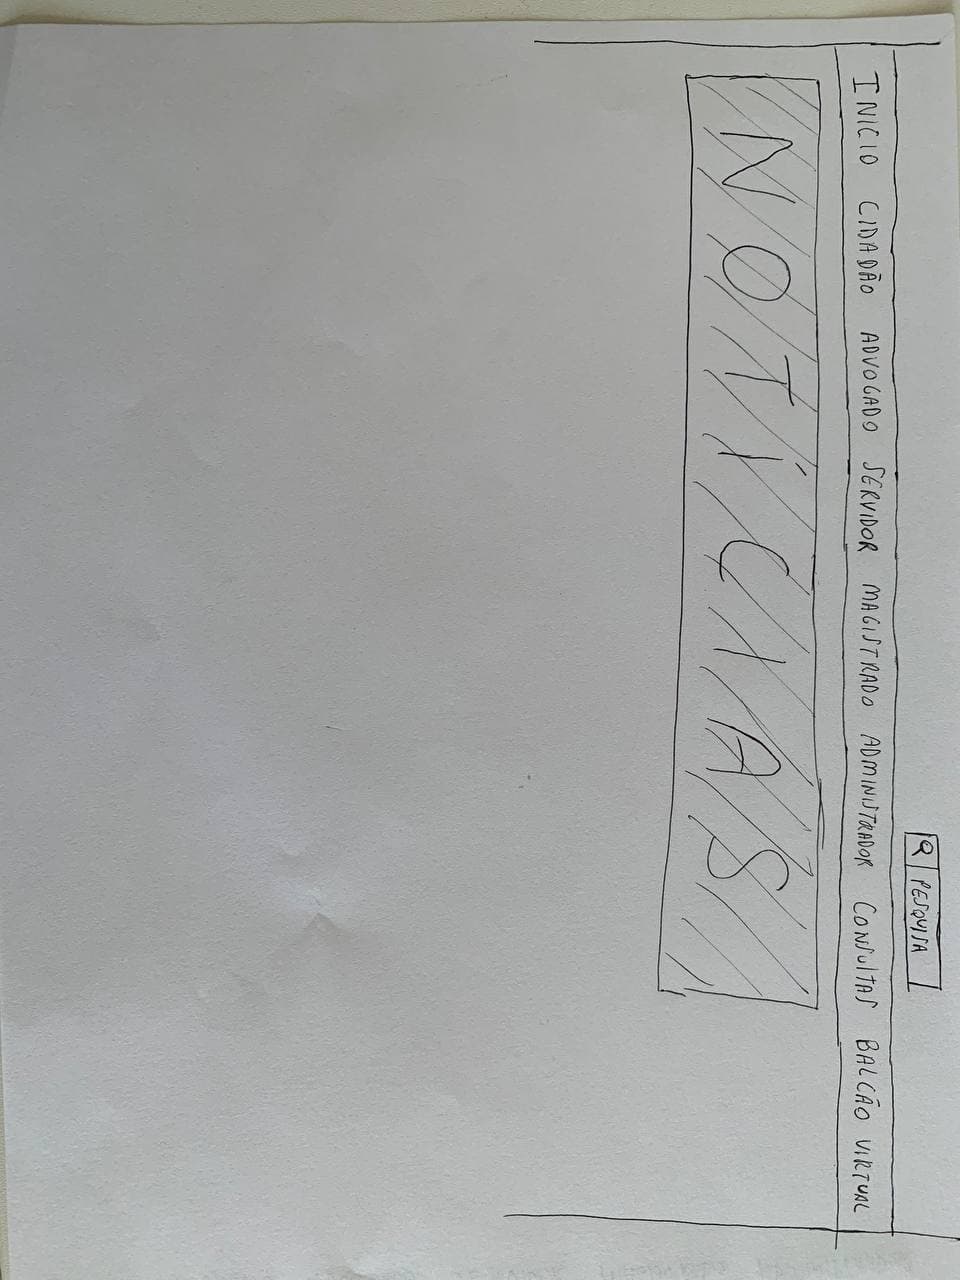 PESQUISA
INICIO CIDADÃO ADVOGADO SERVIDOR MAGISTRADO ADMINISTRADOR CONSULTAS BALCÃO VIRTUAL
NOTÍCIAS